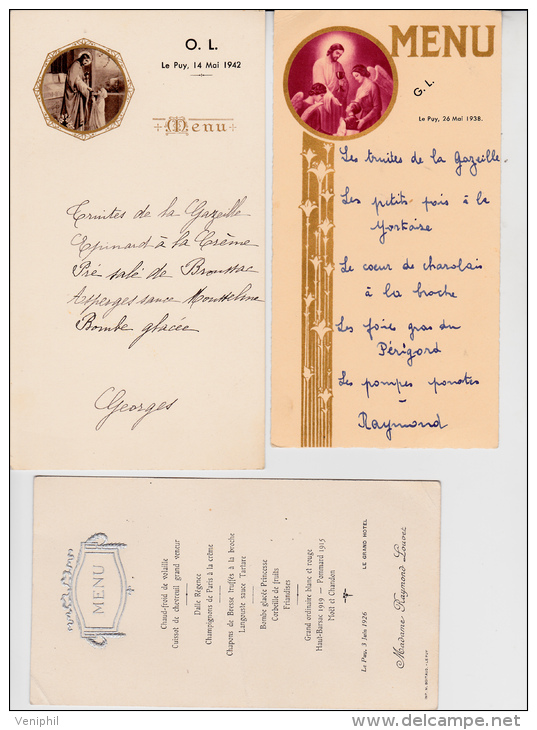 O. L.
Le Puy, 14 Mai 1942
Menu
Truites de la Gazeille
Epinard à la Crème
Pré salé de Broussac
Asperges sauce Mousseline
Bombe glacée
Georges
MENU
G. L.
Le Puy, 26 Mai 1938.
Les truites de la Gazeille
Les petits pois à la
Les coeur de charolais
à la broche
Les foies gras du
Périgord
Les pompes
Raymond
MENU
Chaud-froid de volaille
Cuissot de chevreuil grand veneur
Dalle Régence
Champignons de Paris à la crème
Chapons de Bresse truffés à la broche
Langouste sauce Tartare
Bombe glacée Princesse
Corbeille de fruits
Friandises
Grand ordinaire blanc et rouge
Haut-Barsac 1919 - Pommard 1915
Moët et Chandon
Le Puy, 3 Juin 1926
LE GRAND HOTEL
Madame Raymond Louvet
Veniphil
www.delcampe.net